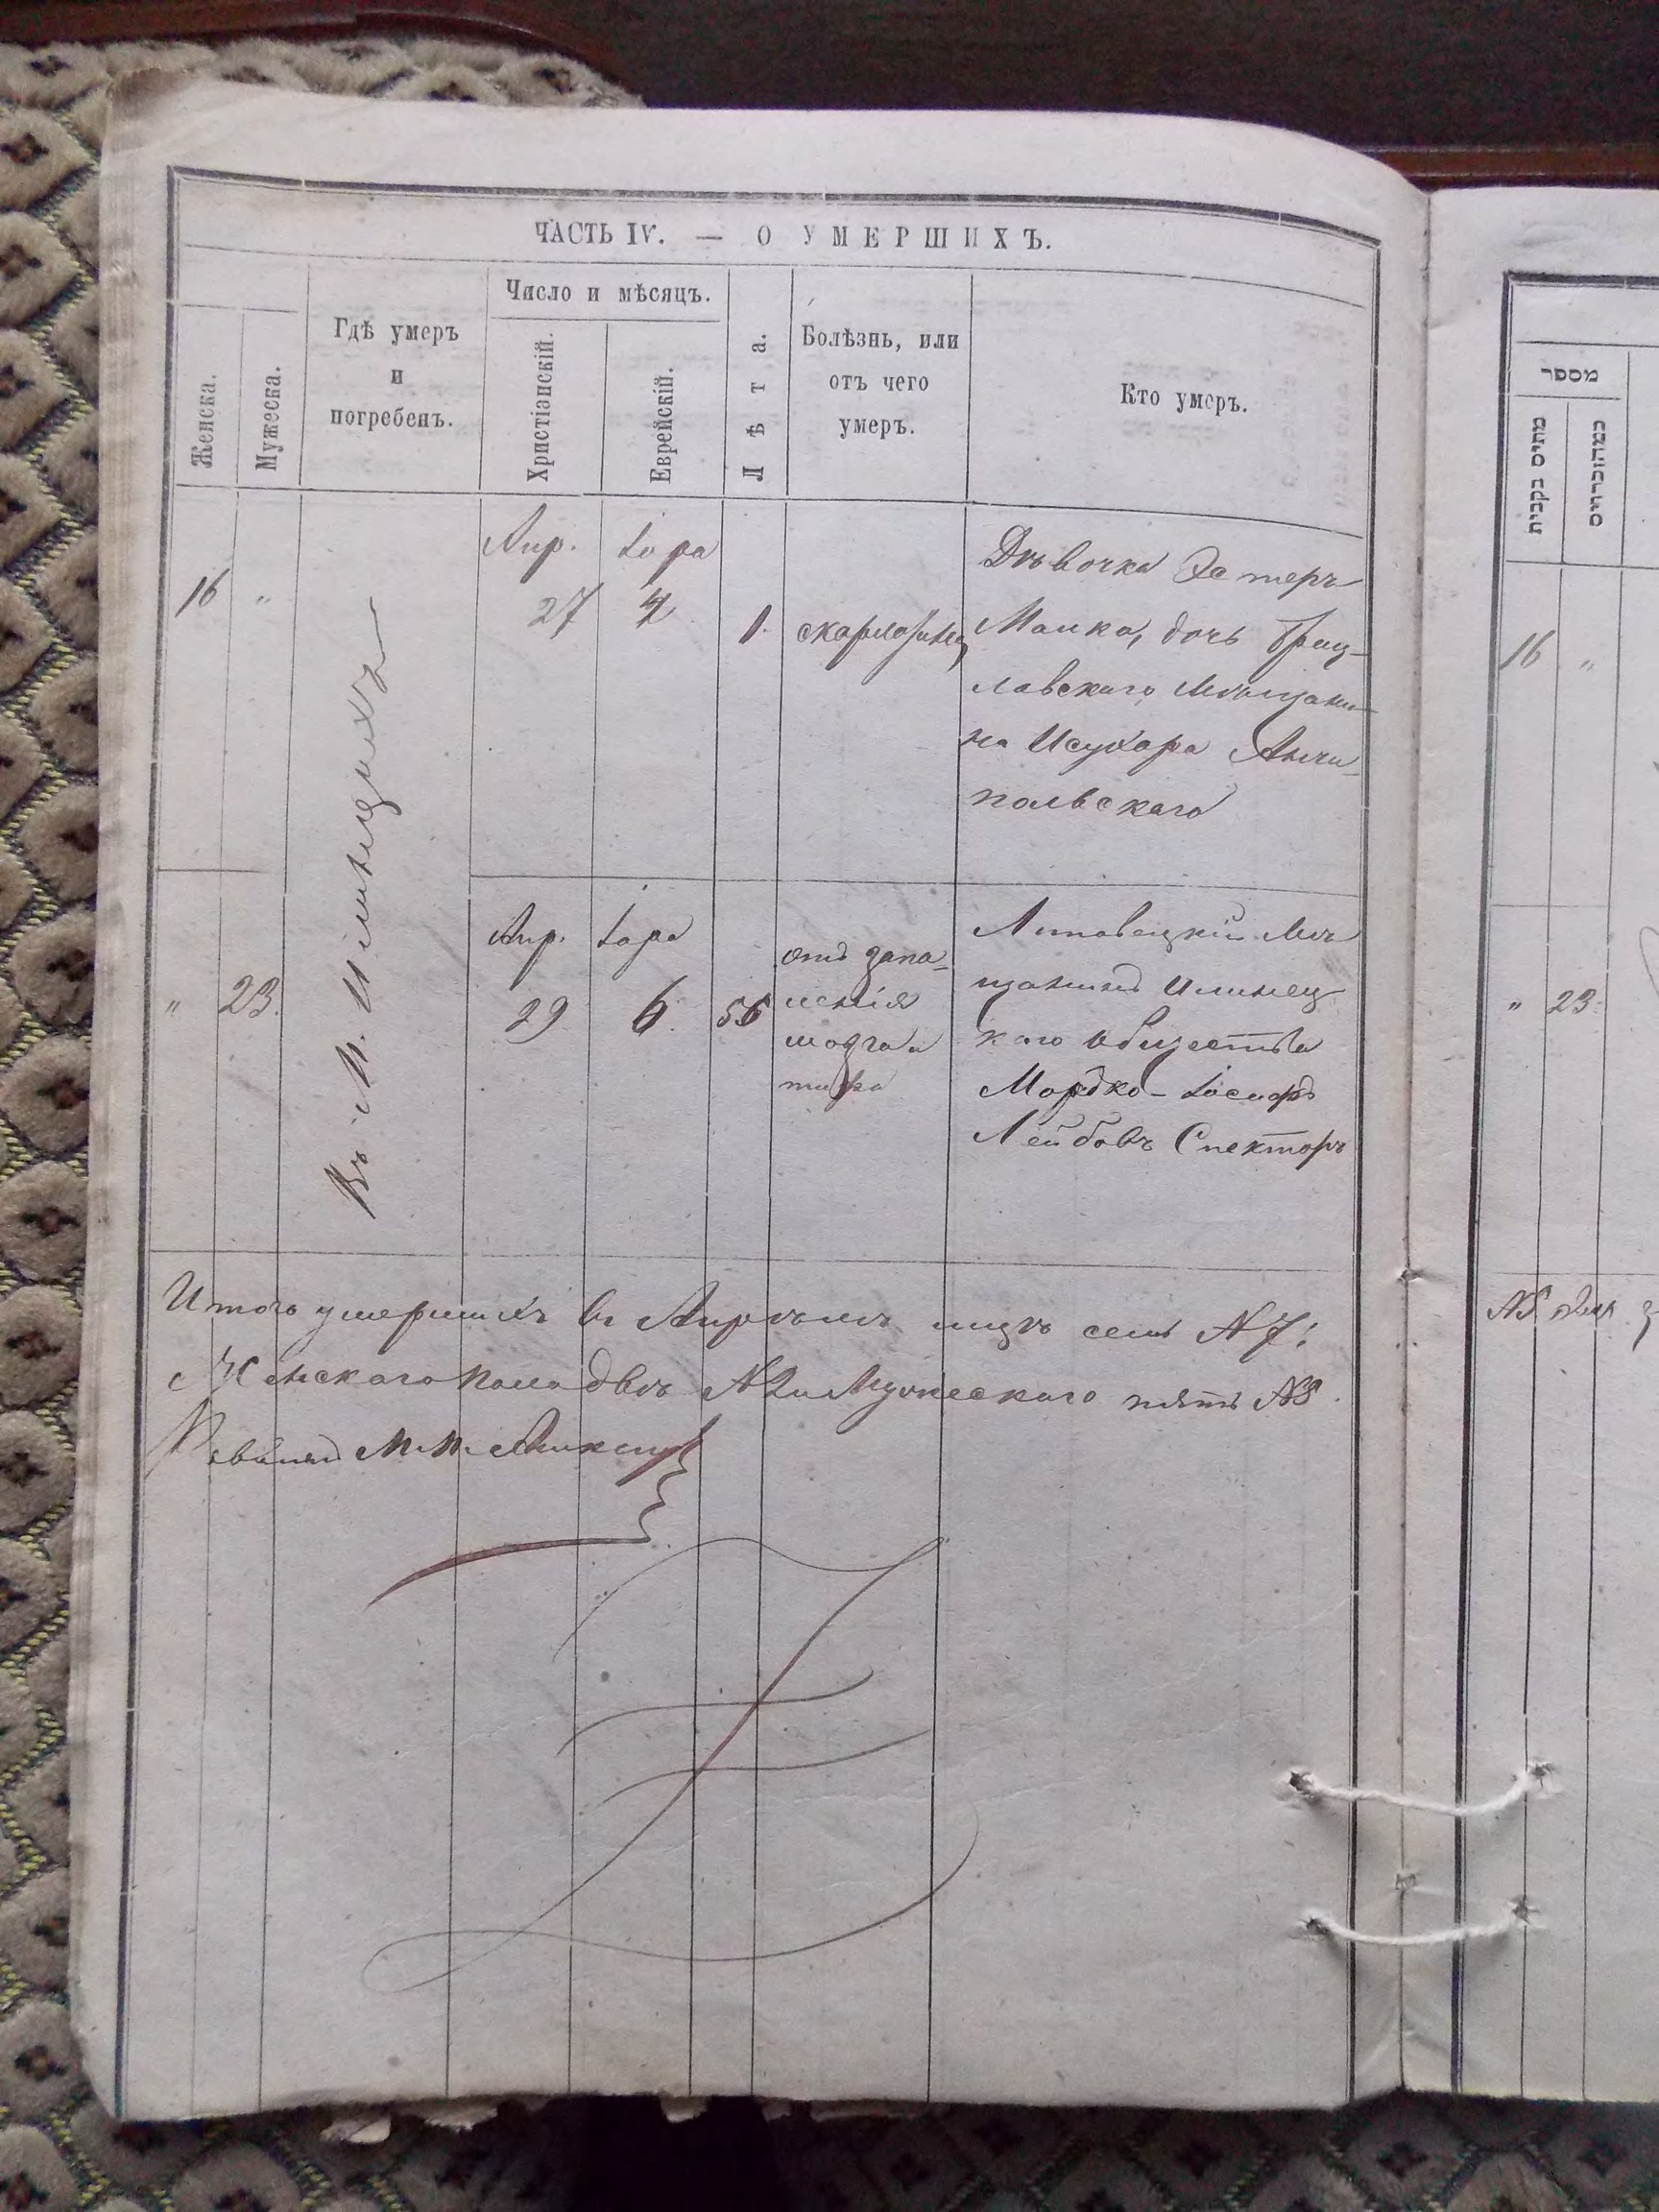 ЧАСТЬ IV. — О УМЕРШИХЪ.
Женска.
Мужеска.
Гдѣ умеръ
и
погребенъ.
Число и мѣсяцъ.
Христіянскій.
Еврейскій.
Лѣта.
Болѣзнь, или
отъ чего
умеръ.
Кто умеръ.
16 "
Въ М. Илинцахъ
Апр. Іора
27 4
1.
скарлатины
Дѣвочка Эстеръ
Малка, дочь Брац-
лавскаго Мѣщани-
на Исухара
польскаго
" 23.
Апр. Іора
29 6. 56
отъ запа-
ленія
мозга и
тифа
Литовецкій Мѣ
щанинъ Илинец
каго общества
Мордко-Іосифъ
Лейбовъ Спекторъ
Итого умершихъ въ Апрѣлѣ мцѣ семь №7:
Женскаго пола двѣ №2 и Мужескаго пять №5.
Раввинъ М. М.
מספר
מתים נקבות
16 "
" 23.